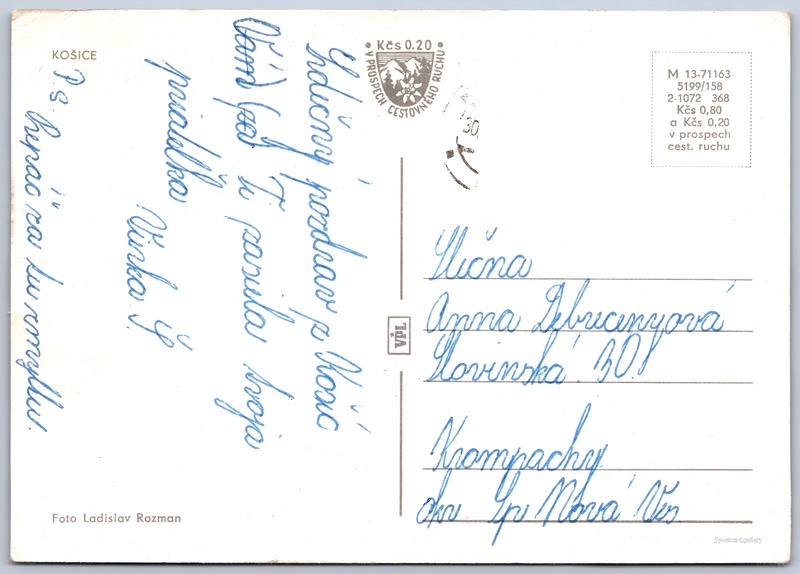 KOŠICE
Kčs 0.20
V PROSPECH CESTOVNÉHO RUCHU
30.
M 13-71163
5199/158
2-1072 368
Kčs 0,80
a Kčs 0,20
v prospech
cest. ruchu
Srdečný pozdrav z Košíc
Vám (za) Ti zasiela tvoja
priateľka
Vierka Š.
P.S. Prepáč za tú zmyllu.
VČT
Slečna
Anna Debrecenyová
Slovinská 30
Krompachy
okr Sp Nová Ves
Foto Ladislav Rozman